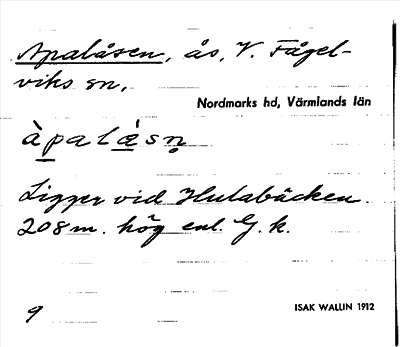 Apalåsen, ås, V. Fågel-
viks sn.
Nordmarks hd, Värmlands län
àpalæ̀sn̥
Ligger vid Hulabäcken.
208 m. hög enl. G. k.
9
ISAK WALLIN 1912